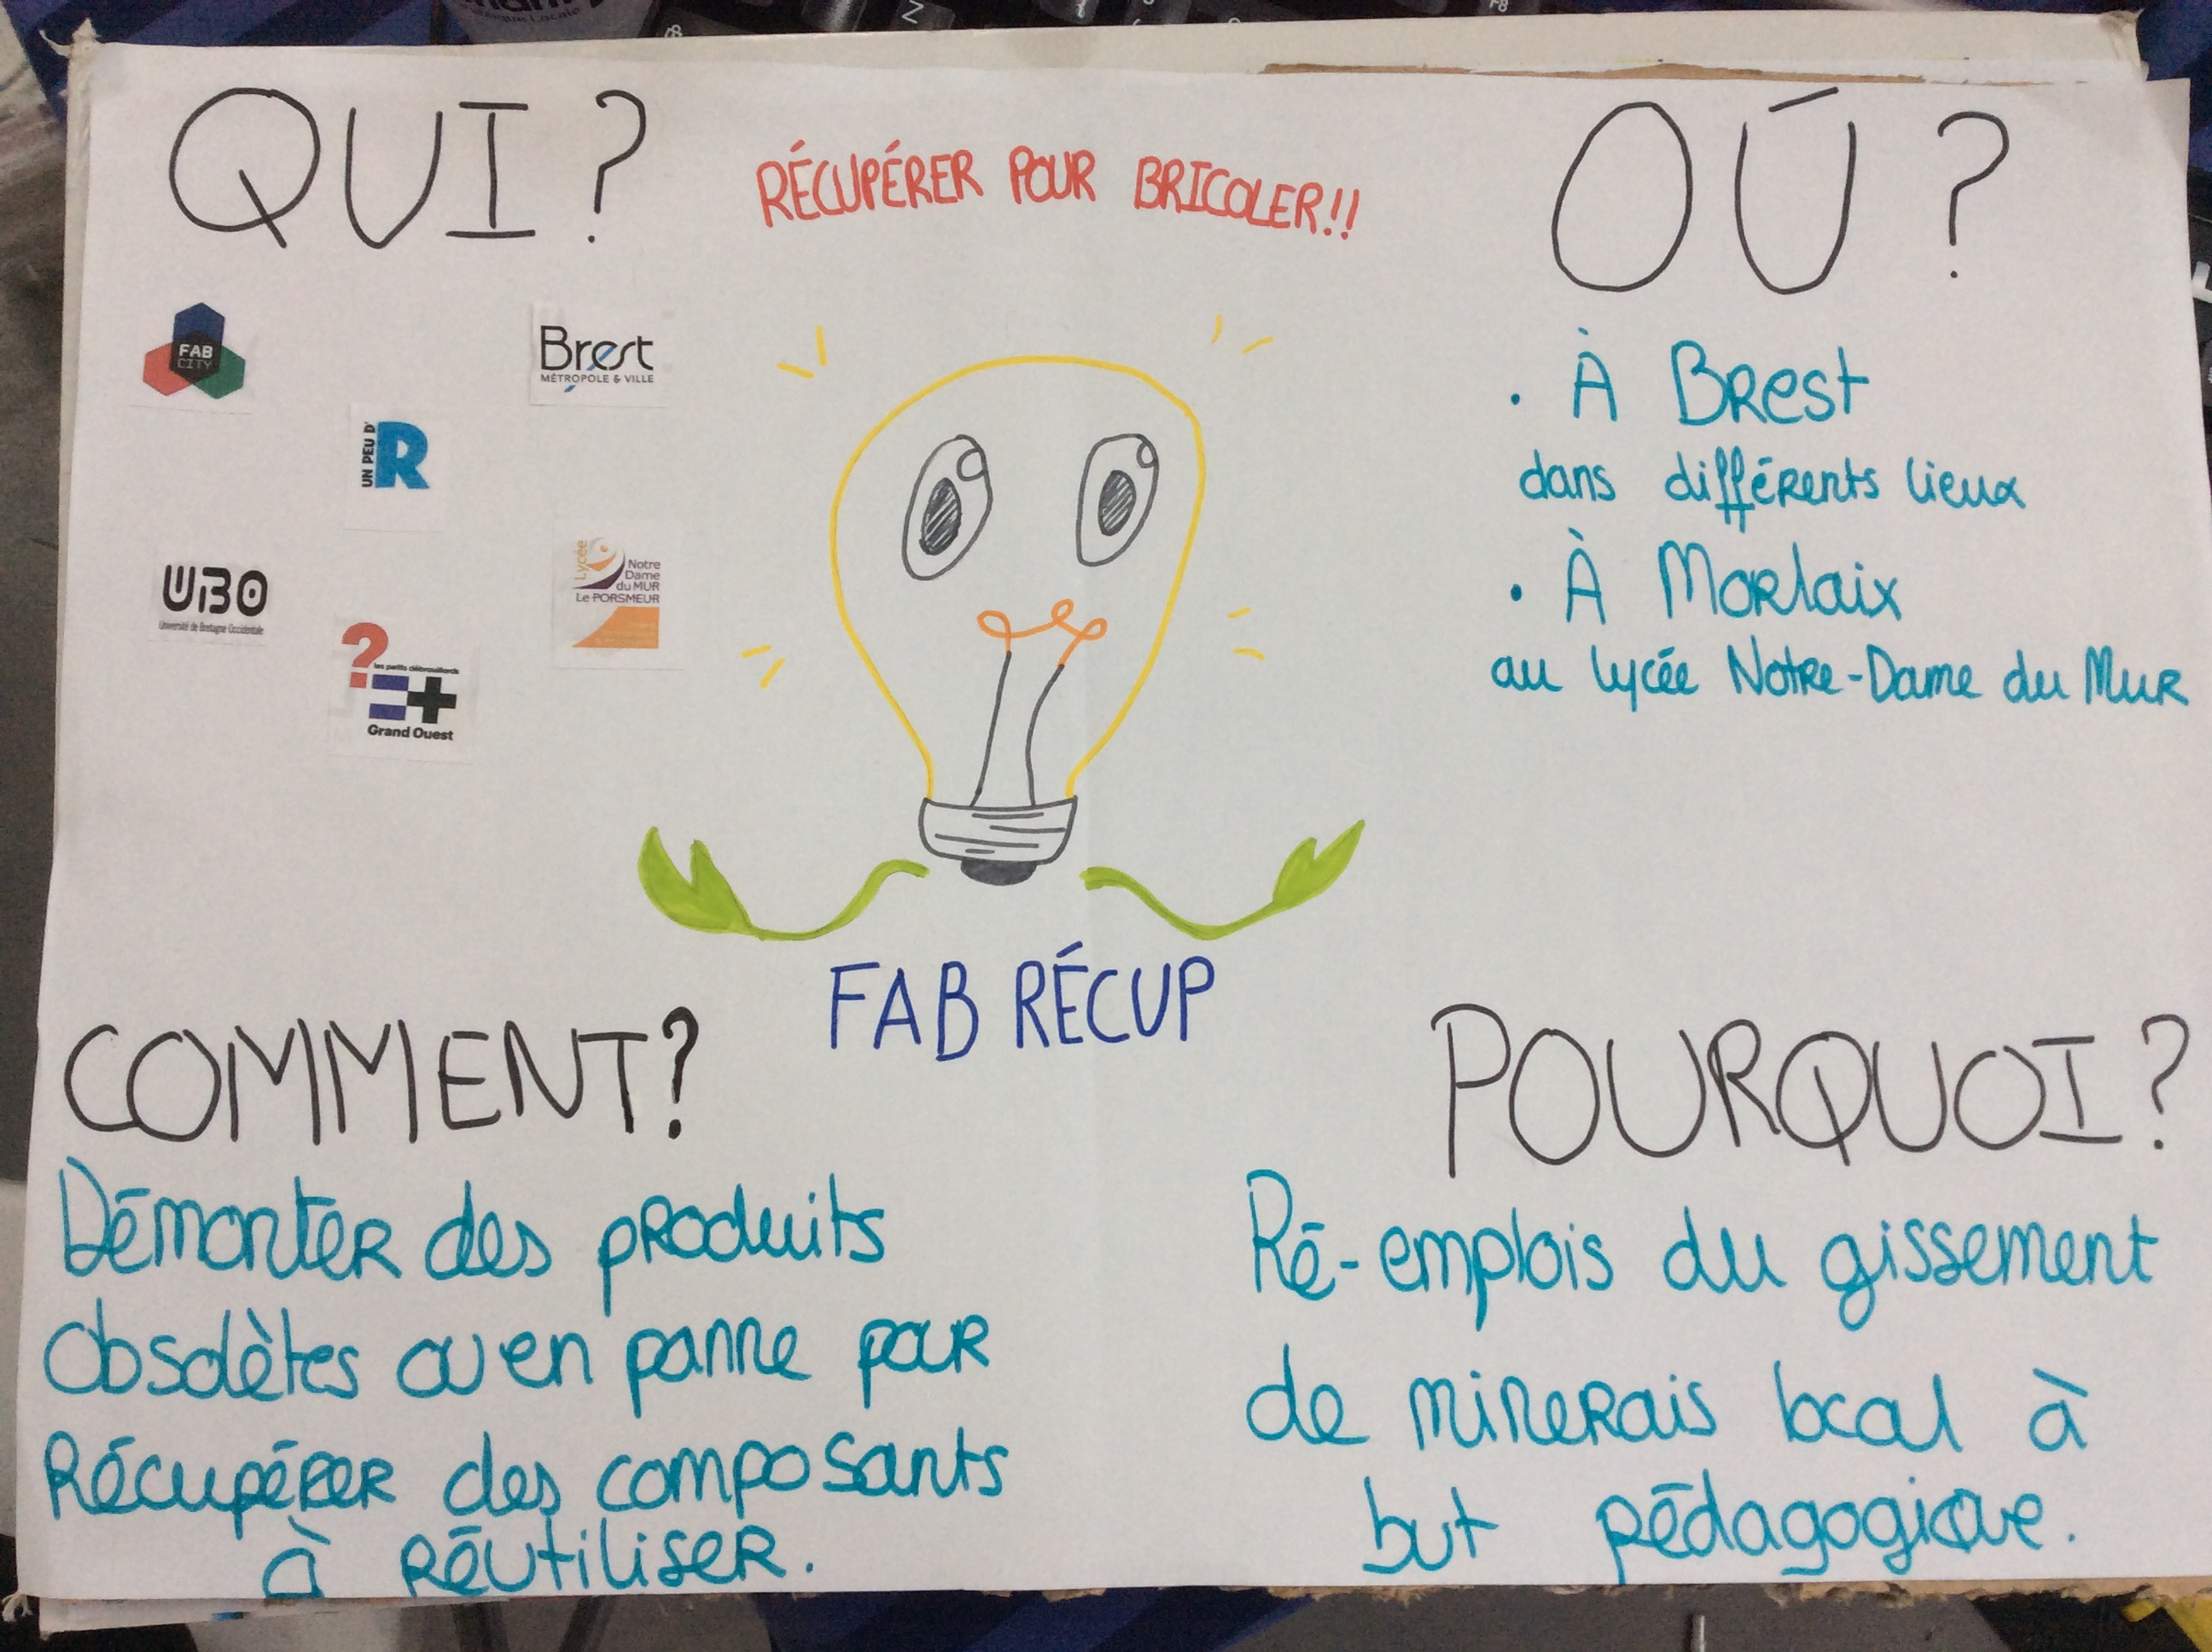 QUI ?
RÉCUPÉRER POUR BRICOLER!!
OÚ ?
FAB
CITY
Brest
MÉTROPOLE & VILLE
UN PEU D'
R
UBO
Université de Bretagne Occidentale
Lycée
Notre
Dame
du MUR
Le PORSMEUR
?
les petits débrouillards
Grand Ouest
• À Brest
dans différents lieux
• À Morlaix
au lycée Notre-Dame du Mur
FAB RÉCUP
COMMENT?
Démonter des produits
obsolètes ou en panne pour
Récupérer des composants
à réutiliser.
POURQUOI ?
Ré-emplois du gissement
de minerais local à
but pédagogique.